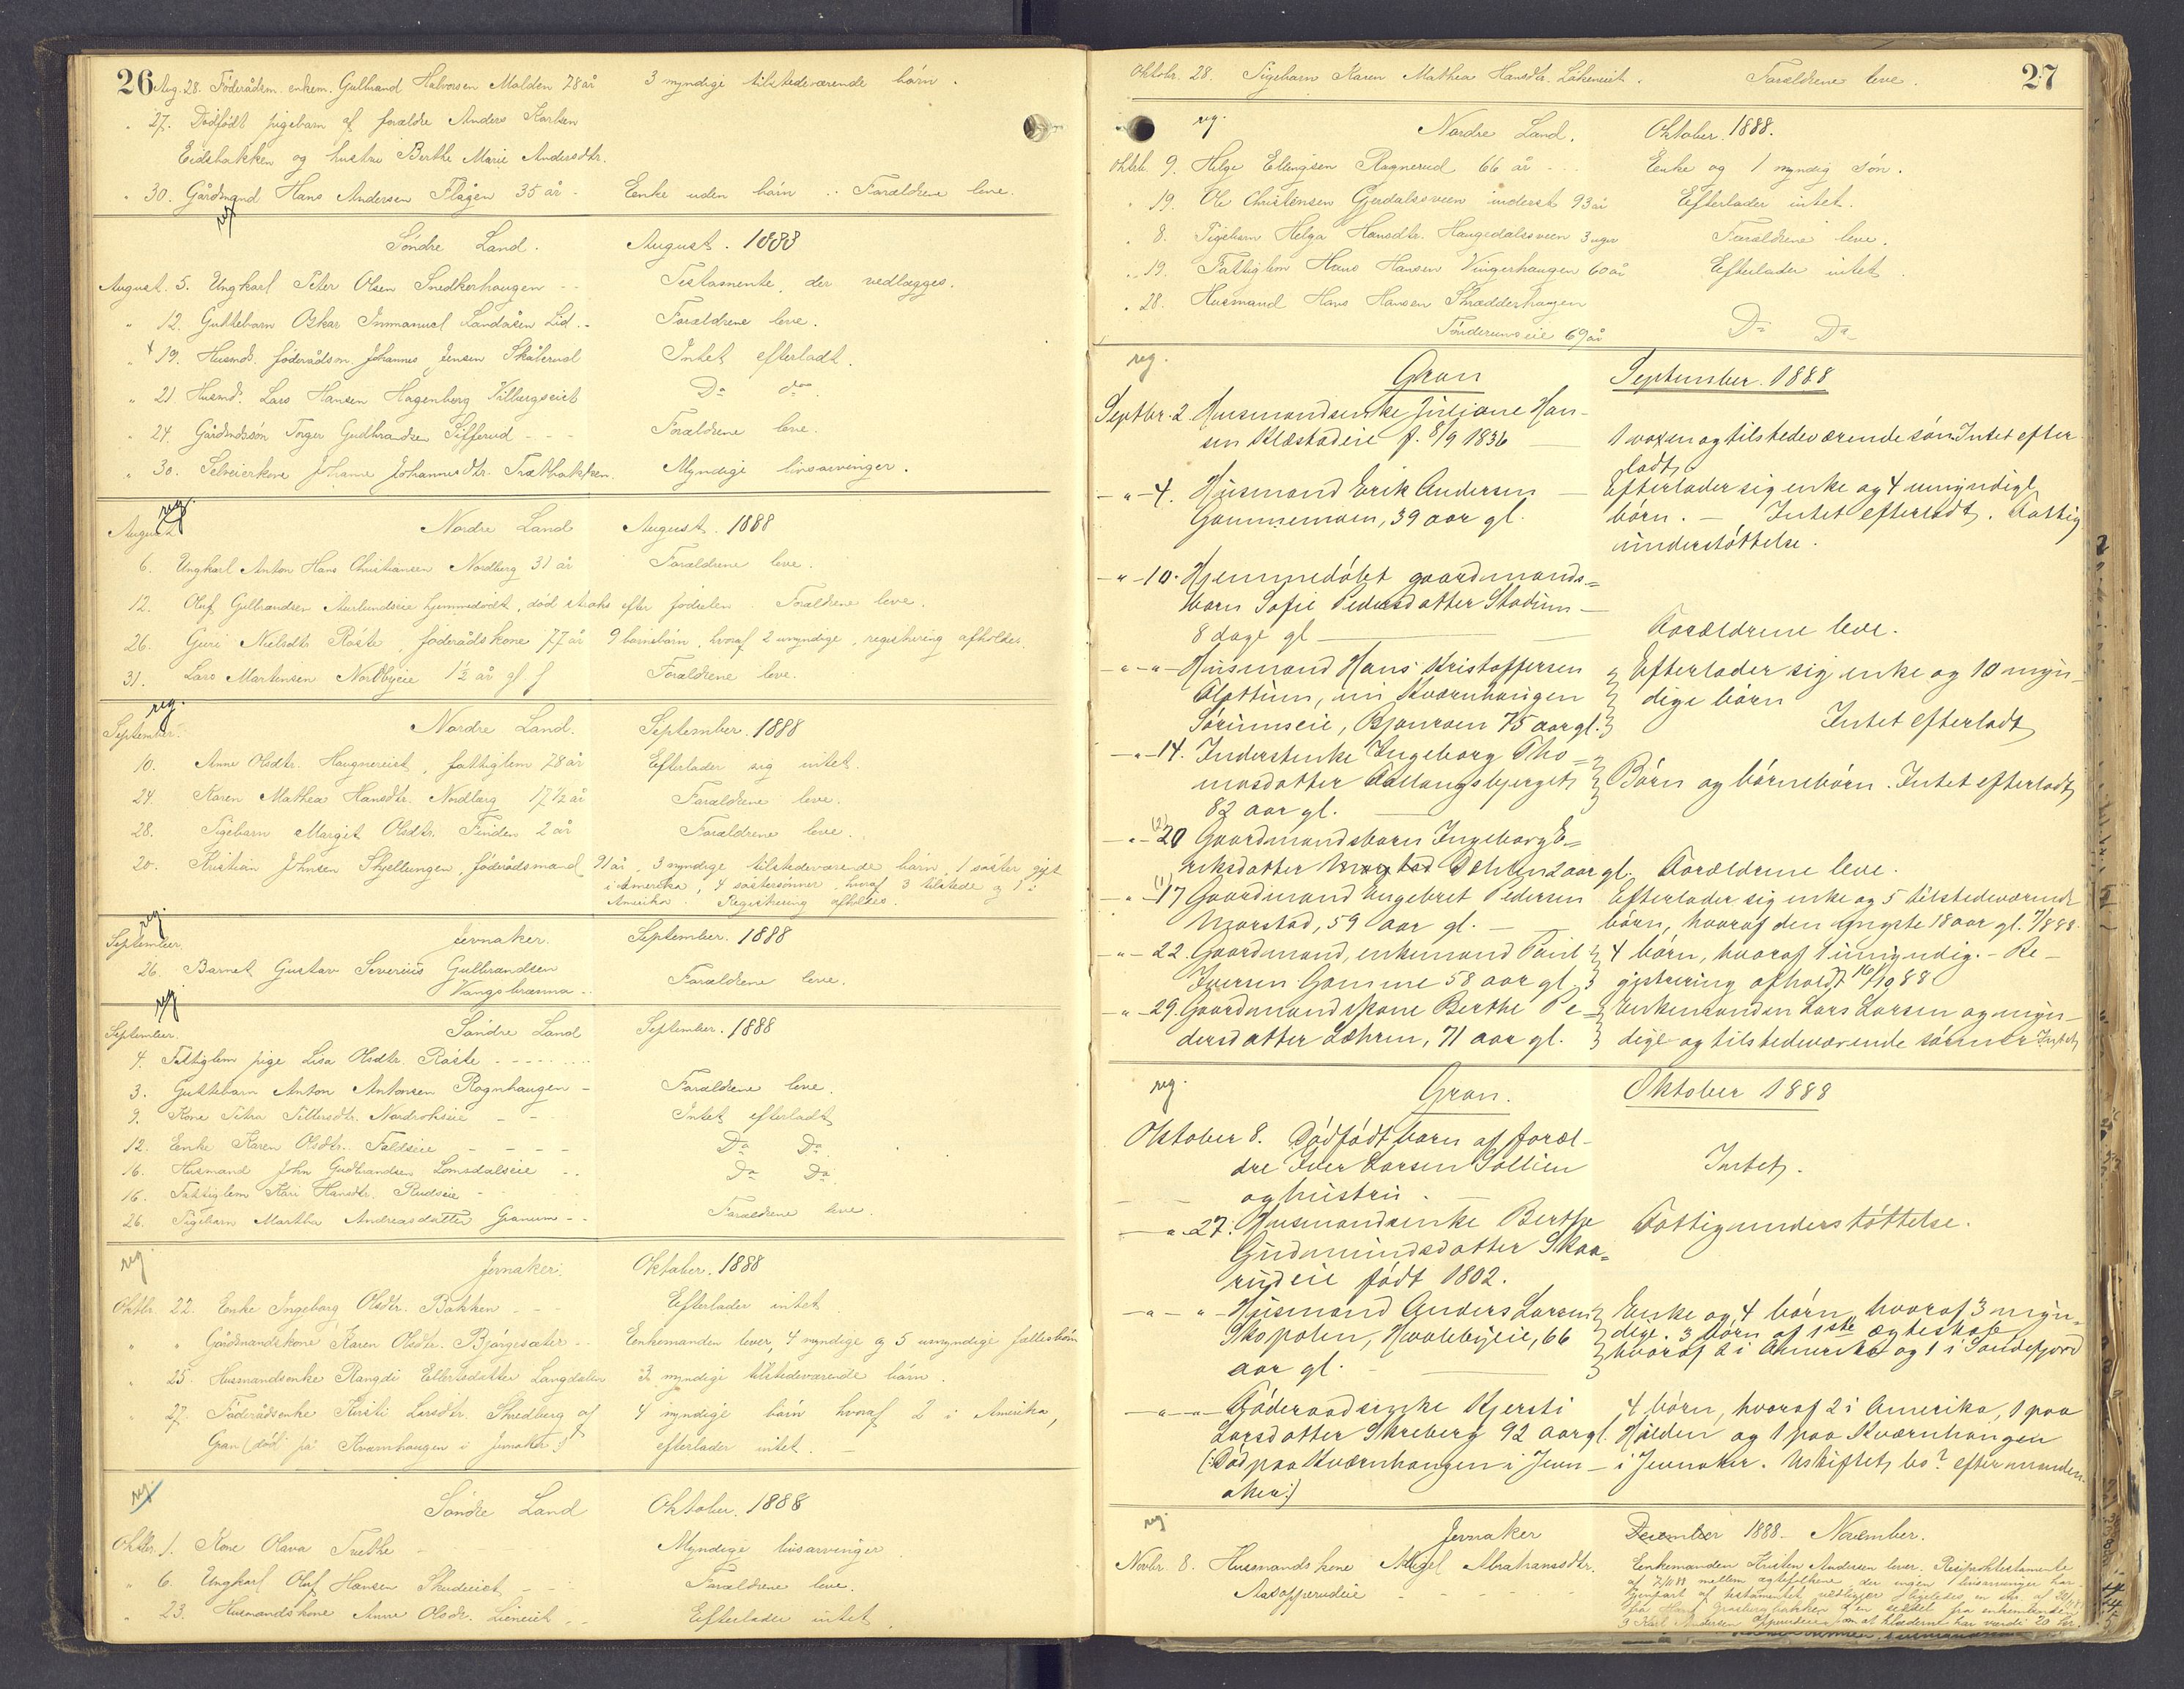 26 Aug. 28. Föderådsm. enkem. Gulbrand Halvorsen Molden 78 år 3 myndige tilstedeværende börn.
" 27. Dödfödt pigebarn af forældre Anders Karlsen
Eidsbakken og hustru Berthe Marie Andersdtr.
" 30. Gårdmand Hans Andersen Flågen 35 år - Enke uden börn .. Forældrene leve.
Söndre Land. August. 1888
August. 5. Ungkarl Peter Olsen Snedkerhaugen - - Testamente der vedlægges.
" 12. Guttebarn Oskar Immanuel Landåsen Lid. - Forældrene leve.
" 19. Husmd. föderådsm. Johannes Jensen Skålerud Intet efterladt.
" 21. Husmd. Lars Hansen Hagenberg Vilbergseiet Do do
" 24. Gårdmdssön Torger Gudbrandsen Sifferud - - - Forældrene leve.
" 30. Selveierkone Johanne Johannesdtr. Trætbakken. Myndige livsarvinger.
reg.
August Nordre Land August. 1888
6. Ungkarl Anton Hans Christiansen Nordberg 31 år Forældrene leve.
12. Oluf Gulbrandsen Aurlundseie hjemmedöbt, död straks efter födselen Forældrene leve.
26. Guri Nielsdtr. Röste, föderådskone 77 år 9 barnebörn, hvoraf 2 umyndige, registrering afholdes.
31. Lars Martinsen Nordbyeie 1½ år gl. Forældrene leve.
reg.
September. Nordre Land. September. 1888
10. Anne Olsdtr. Haugnereiet, fattiglem 78 år Efterlader sig intet.
24. Karen Mathea Hansdtr. Nordberg 17½ år Forældrene leve.
28. Pigebarn Margit Olsdtr. Finden 2 år Forældrene leve.
20. Kristian Johnsen Skjellungen, föderådsmand 91 år, 3 myndige tilstedeværende börn, 1 söster gift
i Amerika, 4 söstersönner, hvoraf 3 tilstede og 1 i
Amerika. Registrering afholdes.
reg.
September. Jevnaker. September. 1888
26. Barnet Gustav Severius Gulbrandsen
Vangsbrænna.. Forældrene leve.
reg
September. Söndre Land September. 1888
4. Fattiglem pige Lisa Olsdtr. Röste - - - - -
3. Guttebarn Anton Antonsen Rognhaugen - Forældrene leve.
9. Kone Petra Pettersdtr. Nordrokseie - - Intet efterladt
12. Enke Karen Olsdtr. Faldseie - - - - Do Do
16. Husmand John Gudbrandsen Lomsdalseie - - Do Do
16. Fattiglem Kari Hansdtr. Rudseie -
26. Pigebarn Martha Andreasdatter Granum - - Forældrene leve.
reg
Jevnaker. Oktober. 1888
Oktbr. 22. Enke Ingeborg Olsdtr. Bakken - - Efterlader intet
" " Gårdmandskone Karen Olsdtr. Björgesæter - - Enkemanden lever, 4 myndige og 5 umyndige fællesbörn
" 25. Husmandsenke Rangdi Ellertsdatter Langdalen 3 myndige tilstedeværende börn.
" 27. Föderådsenke Kirsti Larsdtr. Skredberg af 4 myndige börn hvoraf 2 i Amerika,
Gran (död på Kvernhaugen i Jevnaker) efterlader intet.
reg
Söndre Land Oktober. 1888
Oktbr. 1. Kone Olava Trethe Myndige livsarvinger
" 6. Ungkarl Oluf Hansen Skudeiet - - Forældrene leve.
" 23. Husmandskone Anne Olsdtr. Lieneiet - - Efterlader intet
Oktobr. 28. Pigebarn Karen Mathea Hansdtr. Lökeneiet. Forældrene leve. 27
reg.
Nordre Land. Oktober. 1888.
Oktbr. 9. Helge Ellingsen Rognerud 66 år - - - Enke og 1 myndig sön.
" 19. Ole Christensen Gjerdalssveen inderst 93 år Efterlader intet.
" 8. Pigebarn Helga Hansdtr. Haugedalssveen 3 uger Forældrene leve.
" 19. Fattiglem Hans Hansen Vingerhaugen 60 år Efterlader intet.
" 28. Husmand Hans Hansen Skrædderhaugen
Tönderumseie 69 år Do Do
reg.
Gran September. 1888
Septbr. 2. Husmandsenke Juliane Han-
sen Klæstadeie f. 8/9 1836 — 1 voxen og tilstedeværende sön. Intet efter
ladt
— " — 4. Husmand Erik Andersen — Efterlader sig enke og 4 umyndige
Gammemoen, 39 aar gl. börn. — Intet efterladt. Fattig
understöttelse.
— " — 10. Hjemmedöbt gaardmands=
barn Sofie Pedersdatter Stadum —
8 dage gl — Forældrene leve.
— " — " — Husmand Hans Kristoffersen Efterlader sig enke og 10 myn-
Alettum, Kværnhaugen dige börn
Sörumseie, Bjoneroen 75 aar gl. Intet efterladt
— " — 14. Inderstenke Ingeborg Tho=
masdatter Fallangsbjerget Börn og börnebörn. Intet efterladt
82 aar gl.
(2)
— " — 20 Gaardmandsbarn Ingeborg E=
riksdatter Dehlen 2 aar gl. Forældrene leve.
(1)
— " — 17 Gaardmand Engebret Pedersen Efterlader sig enke og 5 tilstedeværende
Morstad, 59 aar gl. — börn, hvoraf den yngste 18 aar gl. 7/8 88.
— " — 22. Gaardmand, enkemand Paul 4 börn, hvoraf 1 umyndig. — Re-
Iversen Gamme 58 aar gl. gistrering afholdt 16/10 88
— " — 29. Gaardmandskone Berthe Pe Enkemanden Lars Larsen og myn-
dersdatter Læhren, 71 aar gl. dige og tilstedeværende sönner Intet
reg.
Gran. Oktober 1888
Oktober 8. Dödfödt barn af foræl-
dre Iver Larsen Sollien Intet.
og hustru.
— " — 27. Husmandsenke Berthe Fattigunderstöttelse.
Gudmundsdatter Skaa=
rudeie födt 1802.
— " — " — Husmand Anders Larsen Enke og 4 börn, hvoraf 3 myn=
Skopolen, Hvalebyeie, 66 dige. 3 börn af 1ste ægteskab
aar gl. — hvoraf 2 i Amerika og 1 i Sandefjord
— " — " — Föderaadsenke Kjersti 4 börn, hvoraf 2 i Amerika, 1 paa
Larsdatter Skreberg 92 aar gl. Halden og 1 paa Kværnhaugen
(: Död paa Kværnhaugen i Jevn- i Jevnaker. Uskiftet bo? efter manden.
aker:)
reg.
Jevnaker December 1888 - November.
Novbr. 8. Husmandskone Abrahamsdtr. Enkemanden Kristen Andersen lever. Reciproktestamente
Aasopperudeie - - - af 7/11 88 mellem ægtefolkene der ingen livsarvinger har.
Gjenpart af testamentet vedligger